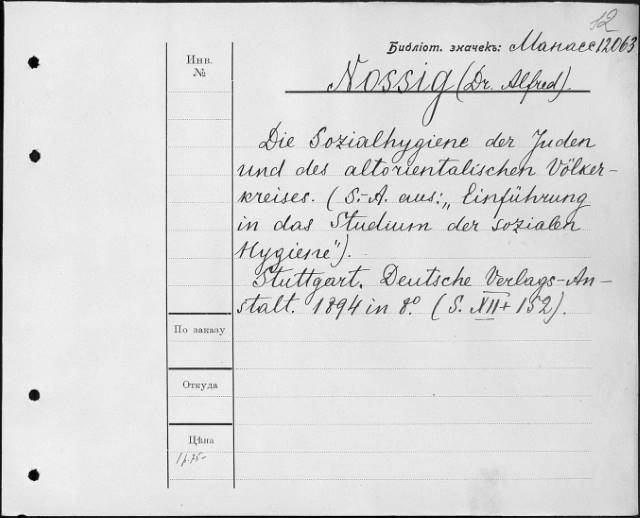 12
Библіот. значекъ: Манасс 12063
Инв.
№
Nossig (Dr. Alfred).
Die Sozialhygiene der Juden
und des altorientalischen Völker-
kreises. (S.-A. aus: „Einführung
in das Studium der sozialen
Hygiene").
Stuttgart. Deutsche Verlags-An-
stalt. 1894 in 8º. (S. XII + 152).
По заказу
Откуда
Цѣна
1 р. 75-